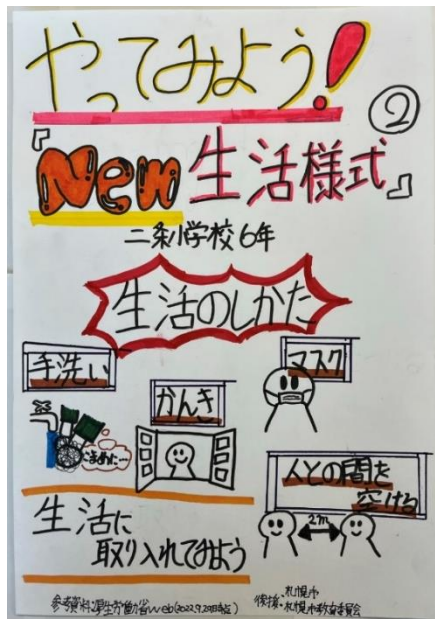 やってみよう!
②
『New 生活様式』
二条小学校 6年
生活のしかた
手洗い
マスク
かんき
こまめに…
人との間を
空ける
2m
生活に
取り入れてみよう
参考資料:厚生労働省web(2022.9.20時点)
後援:札幌市
・札幌市教育委員会